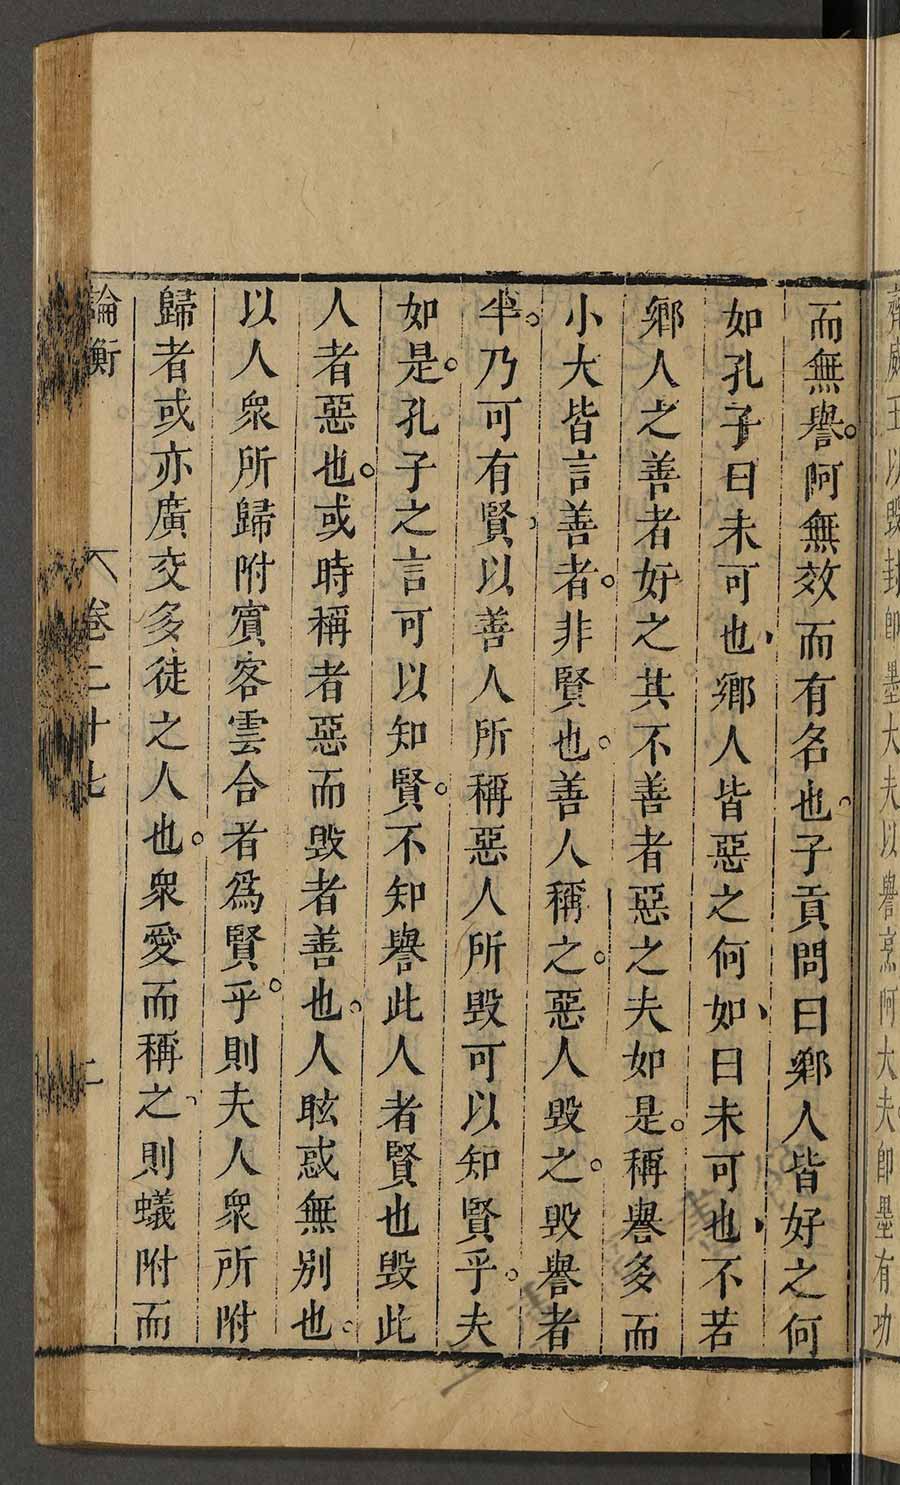 齊威王以毁封即墨大夫以譽烹阿大夫即墨有功
而無譽。阿無效而有名也。子貢問曰鄉人皆好之何
如孔子曰未可也、鄉人皆惡之何如、曰未可也、不若
鄉人之善者好之其不善者惡之夫如是。稱譽多而
小大皆言善者。非賢也。善人稱之。惡人毁之。毁譽者
半。乃可有賢、以善人所稱惡人所毁可以知賢乎。夫
如是。孔子之言可以知賢。不知譽此人者賢也毁此
人者惡也。或時稱者惡而毁者善也。人眩惑無別也。
以人衆所歸附賓客雲合者爲賢乎。則夫人衆所附
歸者或亦廣交多徒之人也。衆愛而稱之、則蟻附而
論衡 卷二十七 二